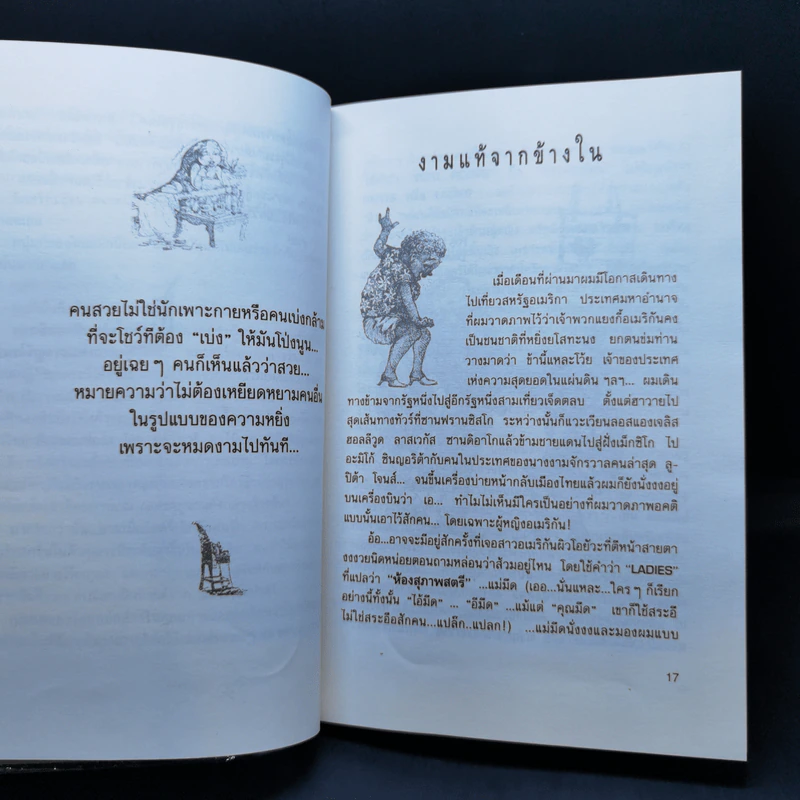 คนสวยไม่ใช่นักเพาะกายหรือคนเบ่งกล้าม
ที่จะโชว์ทีต้อง “เบ่ง” ให้มันโป่งนูน...
อยู่เฉยๆ คนก็เห็นแล้วว่าสวย...
หมายความว่าไม่ต้องเหยียดหยามคนอื่น
ในรูปแบบของความหยิ่ง
เพราะจะหมดงามไปทันที...
งามแท้จากข้างใน
เมื่อเดือนที่ผ่านมาผมมีโอกาสเดินทาง
ไปเที่ยวสหรัฐอเมริกา ประเทศมหาอำนาจ
ที่ผมวาดภาพไว้ว่าเจ้าพวกแยงกี้อเมริกันคง
เป็นชนชาติที่หยิ่งยโสทะนง ยกตนข่มท่าน
วางมาดว่า ข้านี้แหละโว้ย เจ้าของประเทศ
แห่งความสุดยอดในแผ่นดิน ฯลฯ... ผมเดิน
ทางข้ามจากรัฐหนึ่งไปสู่อีกรัฐหนึ่งสามเที่ยวเจ็ดตลบ ตั้งแต่ฮาวายไปสู่
สุดเส้นทางทัวร์ที่ซานฟรานซิสโก ระหว่างนั้นก็แวะเวียนลอสแองเจลิส
ฮอลลีวูด ลาสเวกัส ซานดิอาโกแล้วข้ามชายแดนไปสู่ฝั่งเม็กซิโก ไป
อะมิโก้ ซินญอริต้ากับคนในประเทศของนางงามจักรวาลคนล่าสุด ลู-
ปิต้า โจนส์... จนขึ้นเครื่องบ่ายหน้ากลับเมืองไทยแล้วผมก็ยังนั่งงงอยู่
บนเครื่องบินว่า เอ... ทำไมไม่เห็นมีใครเป็นอย่างที่ผมวาดภาพอคติ
แบบนั้นเอาไว้สักคน... โดยเฉพาะผู้หญิงอเมริกัน!
อ้อ...อาจจะมีอยู่สักครั้งที่เจอสาวอเมริกันผิวโอยัวะที่ตีหน้าสายตา
งงงวยนิดหน่อยตอนถามหล่อนว่าส้วมอยู่ไหน โดยใช้คำว่า “LADIES”
ที่แปลว่า “ห้องสุภาพสตรี” ...แม่มืด (เออ...นั่นแหละ...ใครๆ ก็เรียก
อย่างนี้ทั้งนั้น “ไอ้มืด” ... “อีมืด” ...แม้แต่ “คุณมืด” เขาก็ใช้สระอื
ไม่ใช่สระอือสักคน...แปล๊ก..แปลก!) ...แม่มืดนั่งงงและมองผมแบบ
17